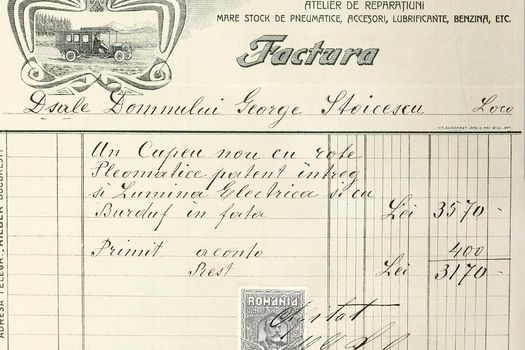 ATELIER DE REPARAȚIUNI
MARE STOCK DE PNEUMATICE, ACCESORI, LUBRIFICANTE, BENZINA, ETC.
Factura
Dsale Domnului George Stoicescu Loco
Un Cupeu nou cu rote
Pleomatice patent întreg
si Lumina Electrica si cu
Burduf in fata Lei 3570 -
Primit aconto 400
Rest Lei 3170 -
ROMANIA
Chitat
ADRESA TELEGR.: „RIEBER" BUCURESTI